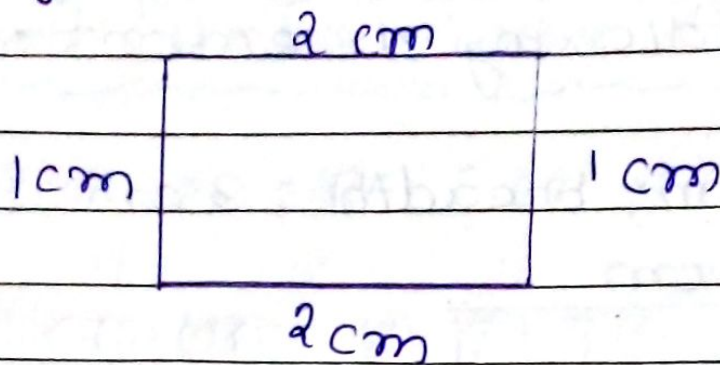 2 cm
1 cm 1 cm
2 cm